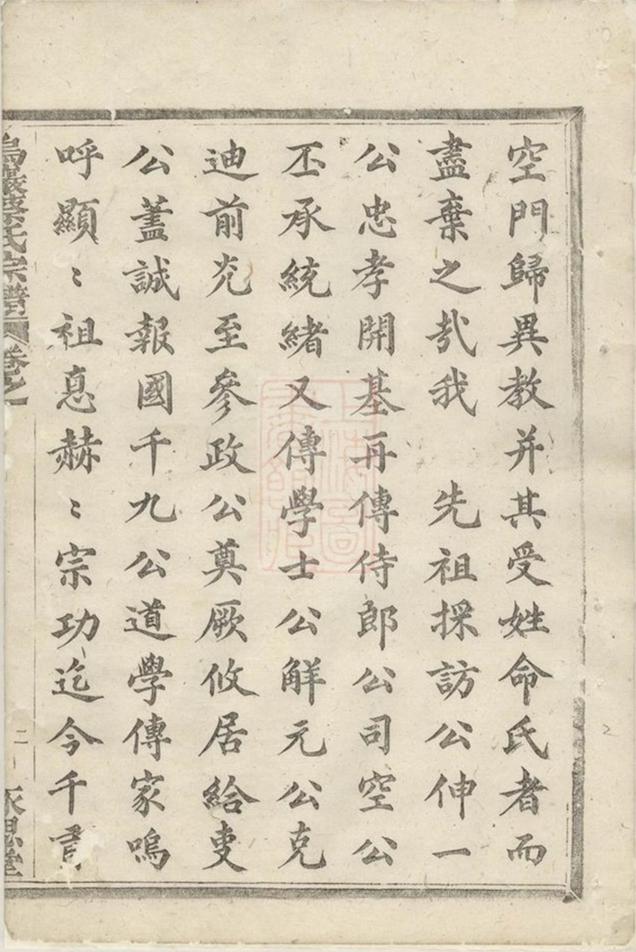 空門歸異教并其受姓命氏者而
盡棄之㢤我 先祖採訪公伸一
公忠孝開基再傳侍郎公司空公
丕承統緒又傳學士公觧元公克
迪前光至參政公奠厥攸居給叓
公蓋誠報國千九公道學傳家嗚
呼顯〻祖悳赫〻宗功迄今千
烏巖蔡氏宗譜 卷之一 二 永思堂